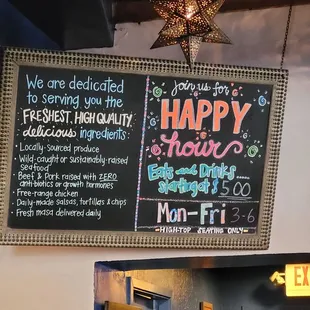 We are dedicated
to serving you the
FRESHEST, HIGH QUALITY,
delicious ingredients:
• Locally-sourced produce
• Wild-caught or sustainably-raised
seafood
• Beef & Pork raised with ZERO
anti-biotics or growth hormones
• Free-range chicken
• Daily-made salsas, tortillas & chips
• Fresh masa delivered daily
Join us for
HAPPY
hour
Eats and Drinks
starting at $5.00
Mon-Fri 3-6
-HIGH-TOP SEATING ONLY-
EX